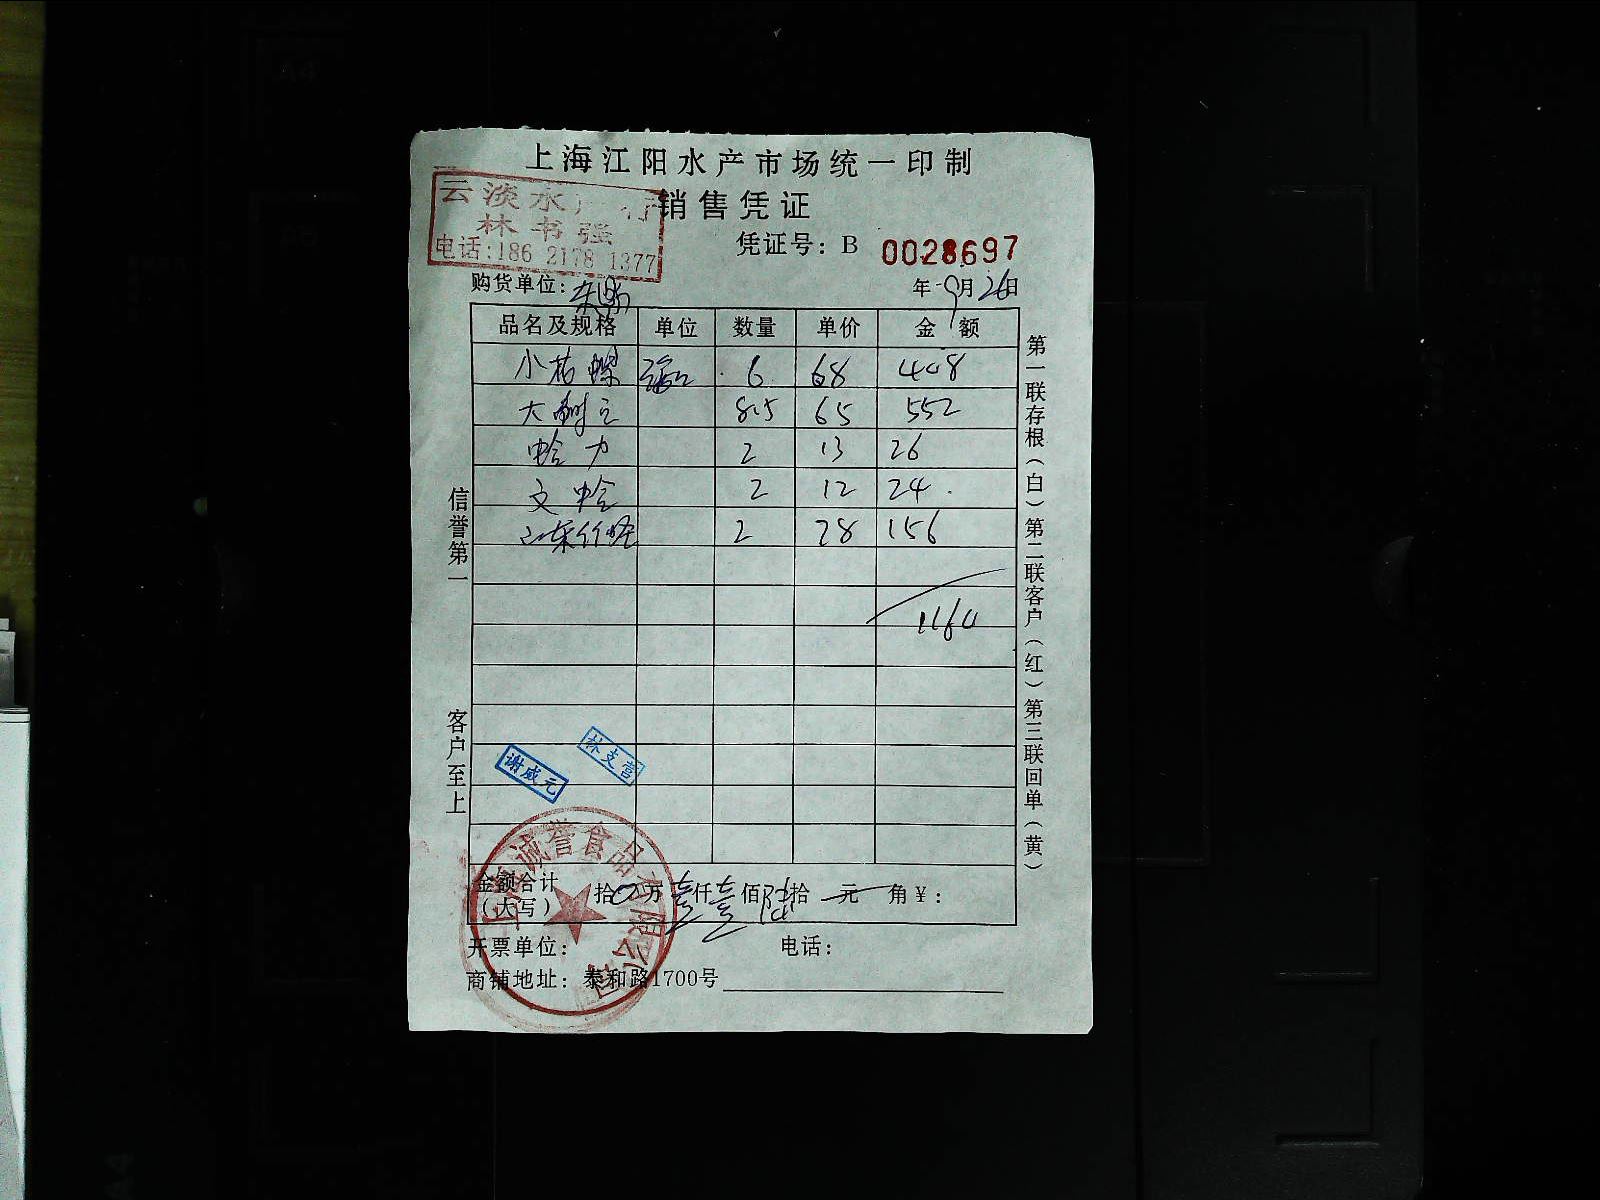 上海江阳水产市场统一印制
销售凭证
云淡水产行
林书强
电话:186 2178 1377
凭证号: B 0028697
购货单位:
年 9月26日
品名及规格 单位 数量 单价 金额
小花螺 6 68 408
大 8.5 65 552
蛤力 2 13 26
文蛤 2 12 24
2 28 156
1164
信誉第一
客户至上
第一联存根(白)第二联客户(红)第三联回单(黄)
谢威元
林支营
上海诚誉食品有限公司
金额合计(大写) 拾0万壹仟壹佰陆拾元 角¥:
开票单位: 电话:
商铺地址: 泰和路1700号